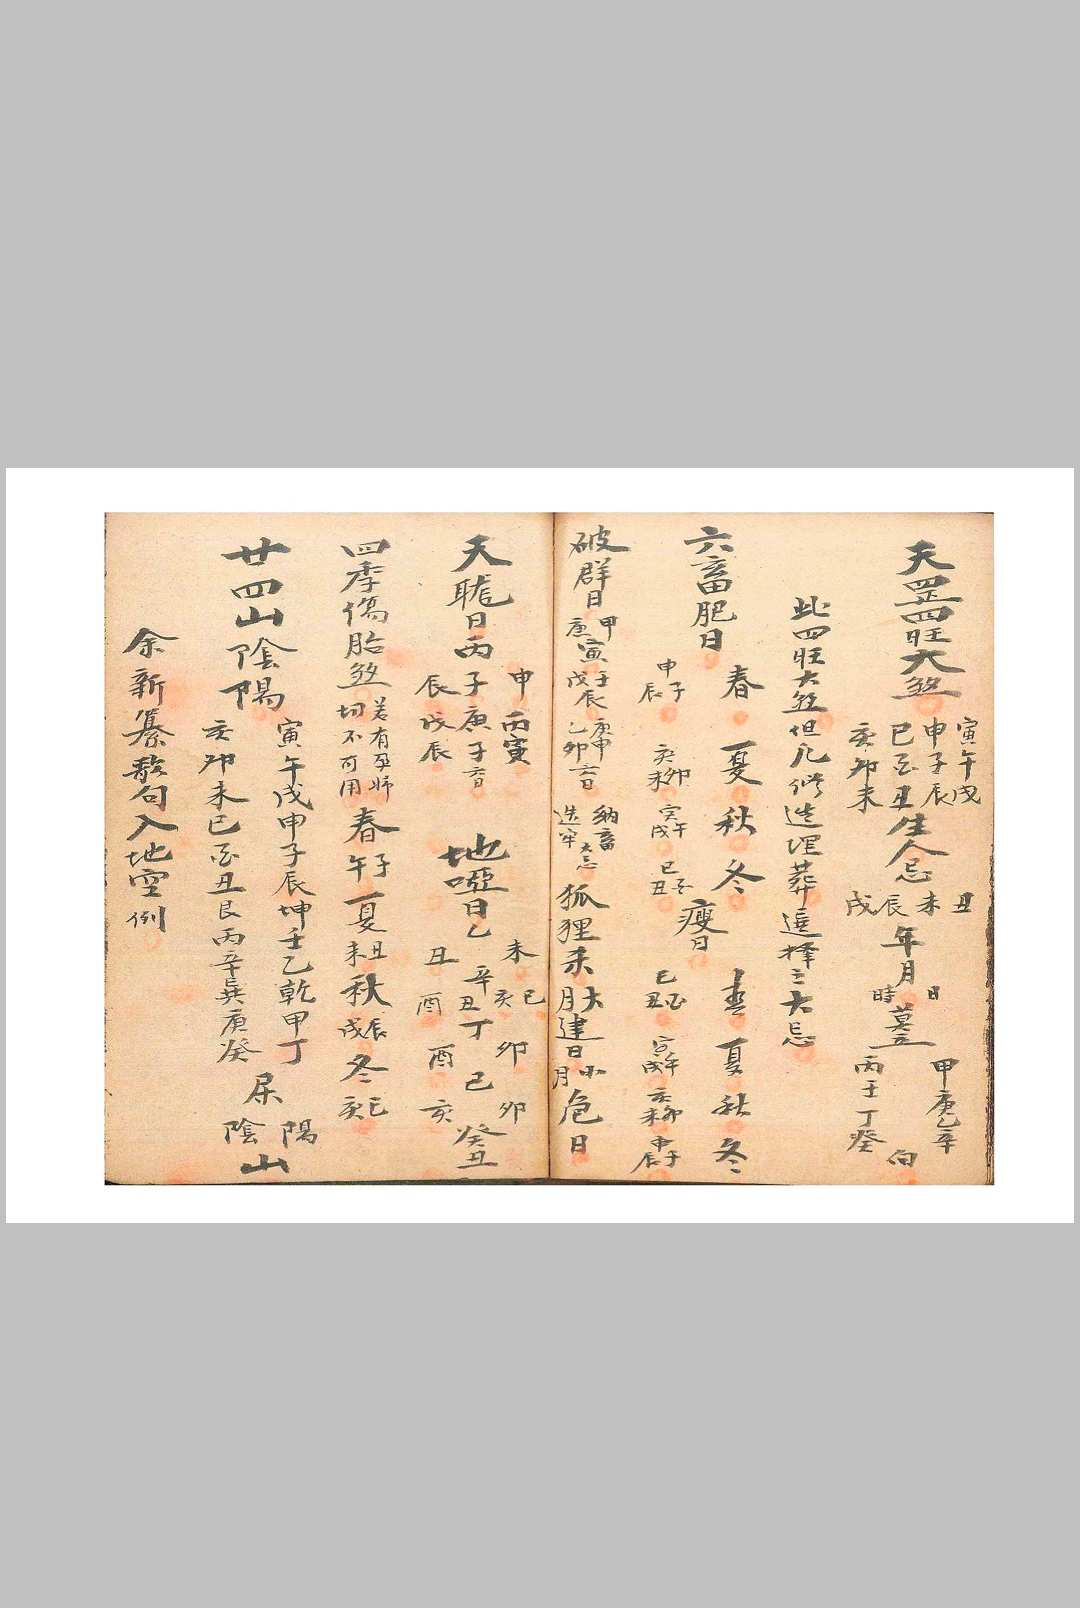 天罡四旺大煞 寅午戌 申子辰 巳酉丑 亥卯未 生人忌 丑未辰戌 年月日時 墓 甲庚乙辛 丙壬丁癸 向
此四旺大煞但凡修造埋葬選擇之大忌
六畜肥日 春 申子辰 夏 亥卯未 秋 寅午戌 冬 巳酉丑 瘦日 春 巳酉丑 夏 寅午戌 秋 亥卯未 冬 申子辰
破群日 甲寅 庚寅 壬辰 戊辰 庚申 乙卯 六畜日 納畜造牢大忌 狐狸杀 大月建日 小月危日
天聾日 丙申 丙寅 丙子 丙辰 庚子 戊辰 日
地啞日 乙未 乙丑 辛巳 辛亥 辛丑 辛酉 丁卯 丁酉 己卯 己亥 癸丑
四季傷胎煞 若有孕婦切不可用 春 子午 夏 丑未 秋 辰戌 冬 巳亥
廿四山陰陽 寅午戌申子辰坤壬乙乾甲丁 屬陽山
亥卯未巳酉丑艮丙辛巽庚癸 屬陰山
余新纂歌句入地空例